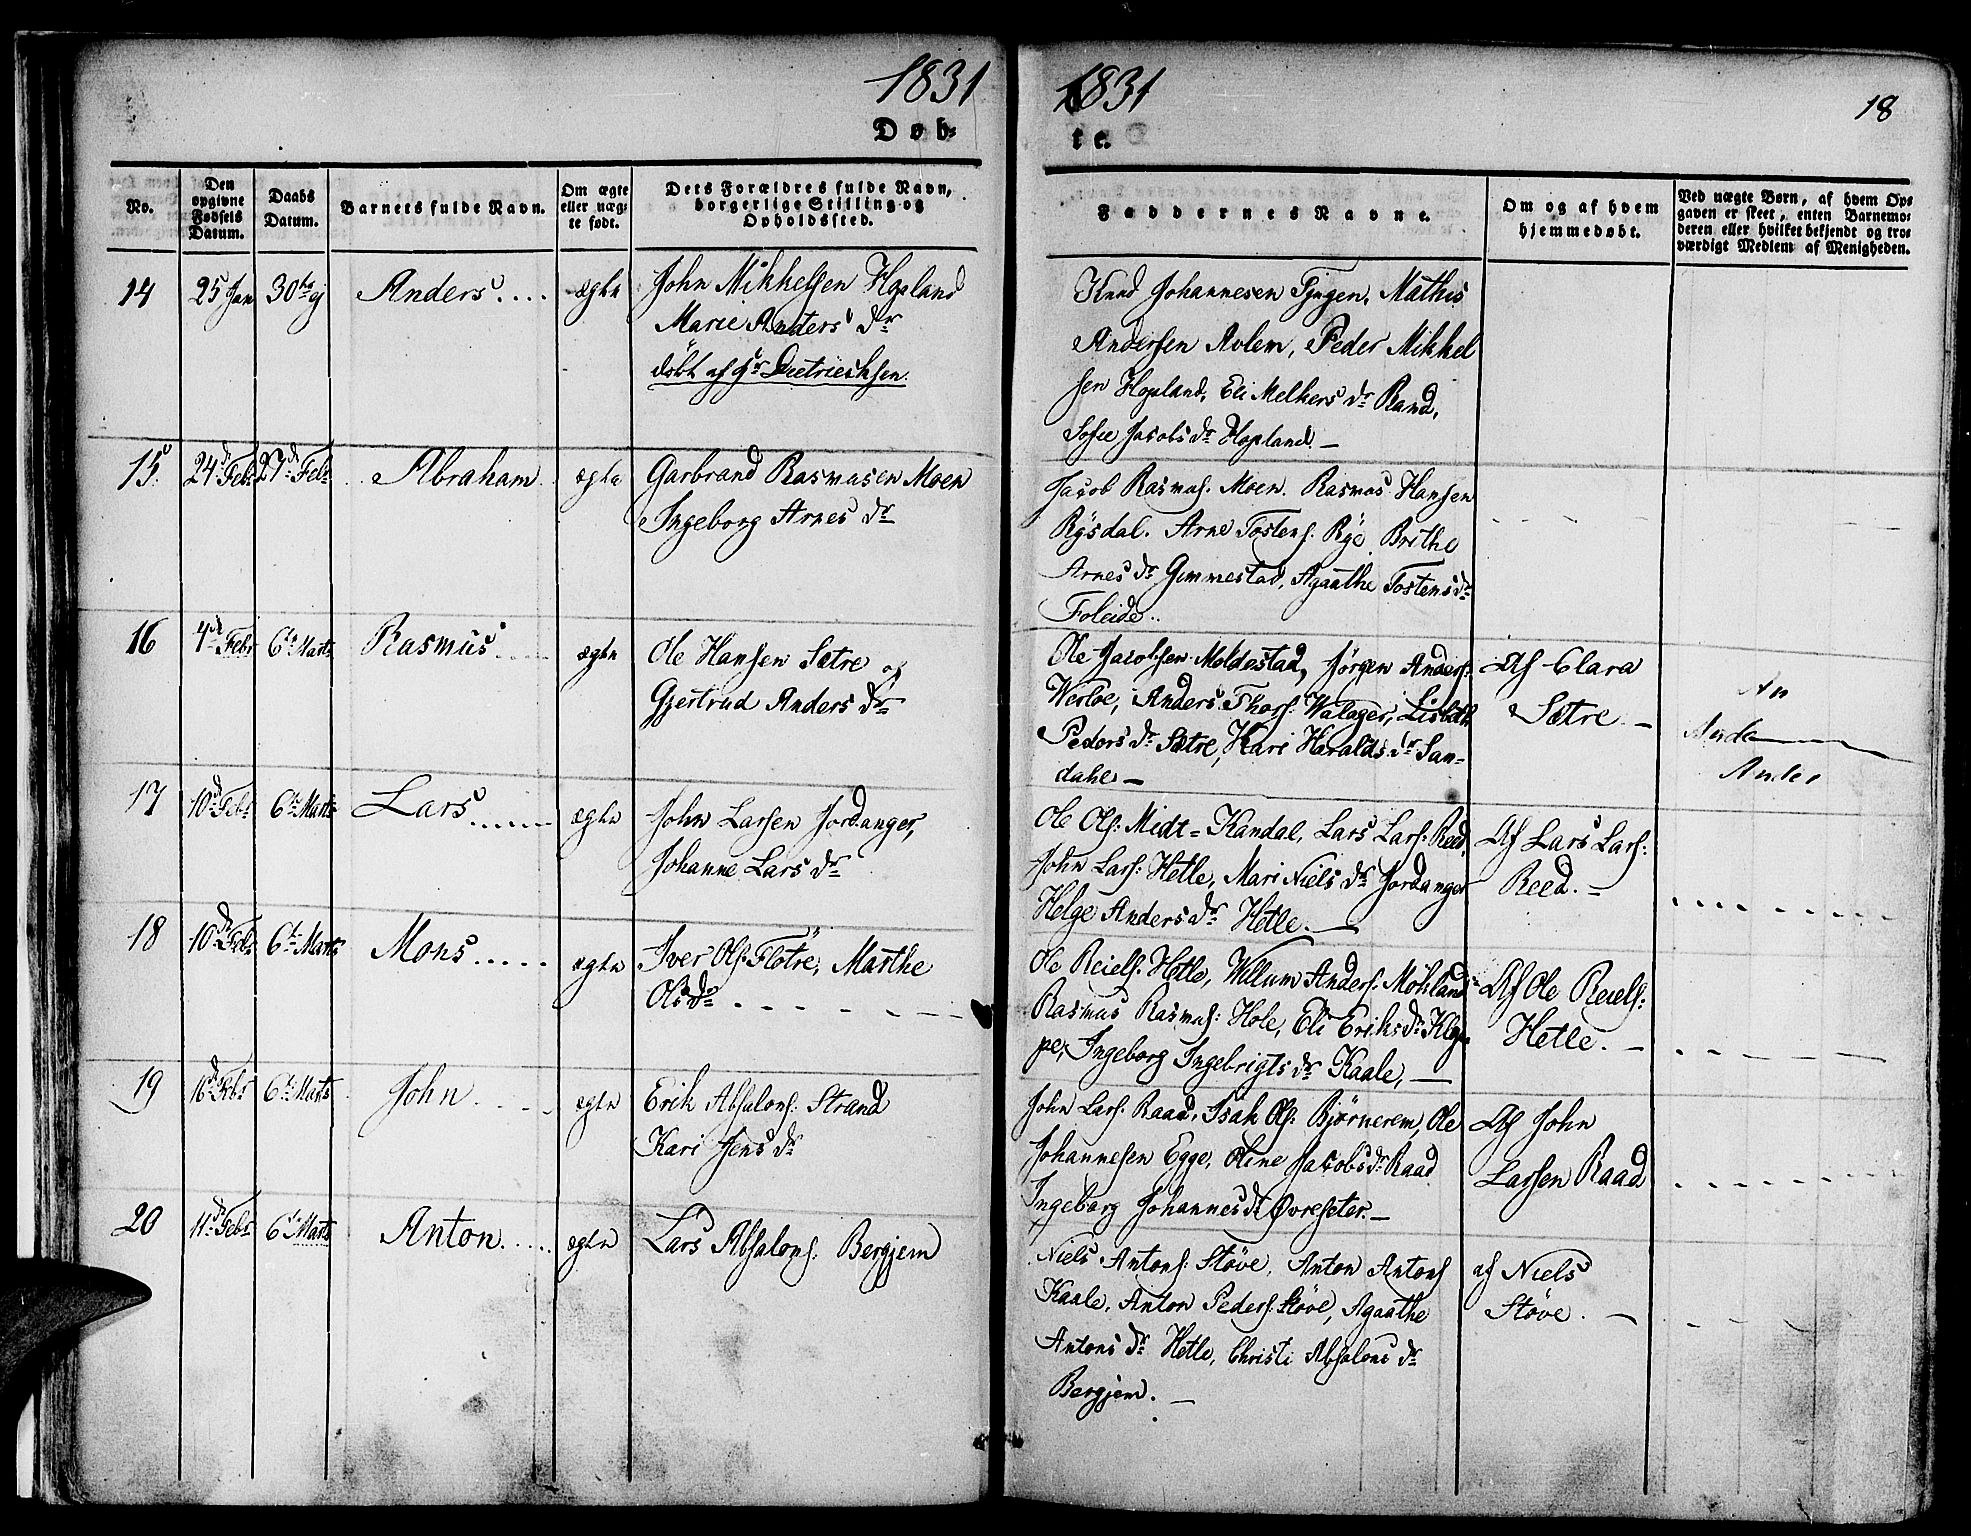 1831
Døb=
No.
Den opgivne Fødsels Datum.
Daabs Datum.
Barnets fulde Navn.
Om ægte eller uægte født.
Dets Forældres fulde Navn, borgerlige Stilling og Opholdssted.
14
25 Jan
30te ej
Anders....
ægte
John Mikkelsen Hopland
Marie Anders dr
döbt af Hr Dietriechsen.
15.
24d Febr
27d Febr
Abraham
ægte
Garbrand Rasmusen Moen
Ingeborg Arnes dr
16
4de Febr
6te Marts
Rasmus
ægte
Ole Hansen Sætre og
Gjertrud Anders dr
17
10d Febr
6te Marts
Lars
ægte
John Larsen Jordanger,
Johanne Lars dr
18
10de Febr
6te Marts
Mons
ægte
Iver Ols: Flötre, Marthe
Ols dr
19
16d Febr
6te Marts
John
ægte
Erik Absalons: Strand
Kari Jens dr
20
11d Febr
6te Marts
Anton
ægte
Lars Absalons: Bergjem
1831
18
te.
Faddernes Navne.
Om og af hvem hjemmedøbt.
Ved uægte Børn, af hvem Op=
gaven er skeet, enten Barnemo=
deren eller hvilket bekjendt og tro=
værdigt Medlem af Menigheden.
Knud Johannesen Tjugen, Mathis
Andersen Avlem, Peder Mikkel
sen Hopland, Eli Melkers dr Rand,
Sofie Jacobs dr Hopland. —
Jacob Rasmus: Moen. Rasmus Hansen
Rysdal. Arne Tostens: Rye Brithe
Arnes dr Gimmestad, Agaathe Tostens dr
Foleide..
Ole Jacobsen Moldestad, Jörgen Anders:
Werloe, Anders Thors: Walager, Lisbeth
Peders dr Sætre, Kari Haralds dr San=
dahl —
Af Clara
Sætre. —
An
Ande
Ander
Ole Ols: Midt=Kandal, Lars Lars: Reed,
John Lars: Hetle, Mari Niels dr Jordanger
Helge Anders dr Hetle. —
Af Lars Lars:
Reed. —
Ole Reiels: Hetle, Willum Anders: Mökland
Rasmus Rasmus: Hole, Eli Eriks dr Klop=
pe, Ingeborg Ingebrigts dr Kaale, —
Af Ole Reiels:
Hetle. —
John Lars: Raad, Isak Ols: Bjørnerem, Ole
Johannesen Egge, Oline Jacobs dr Raad
Ingeborg Johannes dr Øvreseter. —
Af John
Larsen Raad
Niels Antons: Støve, Anton Antons
Kaale, Anton Peders: Støve, Agaathe
Antons dr Hetle, Christi Absalons dr
Bergjem. —
af Niels
Støve. —